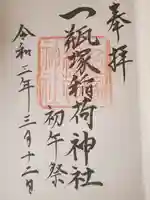 奉拝
一瓶塚稲荷神社
初午祭
令和二年三月十二日